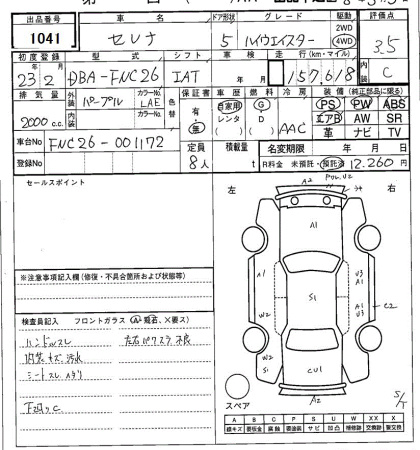 出品番号 車名 ドア形状 グレード 駆動 評価点
1041 セレナ 5 ハイウエイスター 2WD 4WD 3.5
初度登録 型式 シフト 車検 走行(km・マイル) 内装
23年2月 DBA-FNC26 IAT 年 月 157,618 C
排気量 外装 パープル カラーNo. LAE 色替 保証書 車歴 燃料 冷房 装備 (純正部品に限る)
2000 c.c. 内装 カラーNo. 有・無 自家用 レンタ ( ) G D ( ) AAC PS PW ABS
エアB AW SR
革 ナビ TV
車台No. FNC26-001172 定員 積載量 名変期限 年 月 日
登録No. 8人 t R料金 未預託・預託済 12,260円
セールスポイント
左 右
A2
A1
A1
S1
U3
A1
U3
C2
W2
W2
S1
CU1
A2
S/T
※注意事項記入欄(修復・不具合箇所および状態等)
検査員記入 フロントガラス (A・飛石、×要ス)
ハンドルスレ 左右パワスラ不良
内装キズ汚れ
シートスレ
下廻りC
スペア
A B C P S U W XX X
線キズ 要板金 腐蝕 要塗装 サビ 凹凸 補修跡 交換跡 要交換